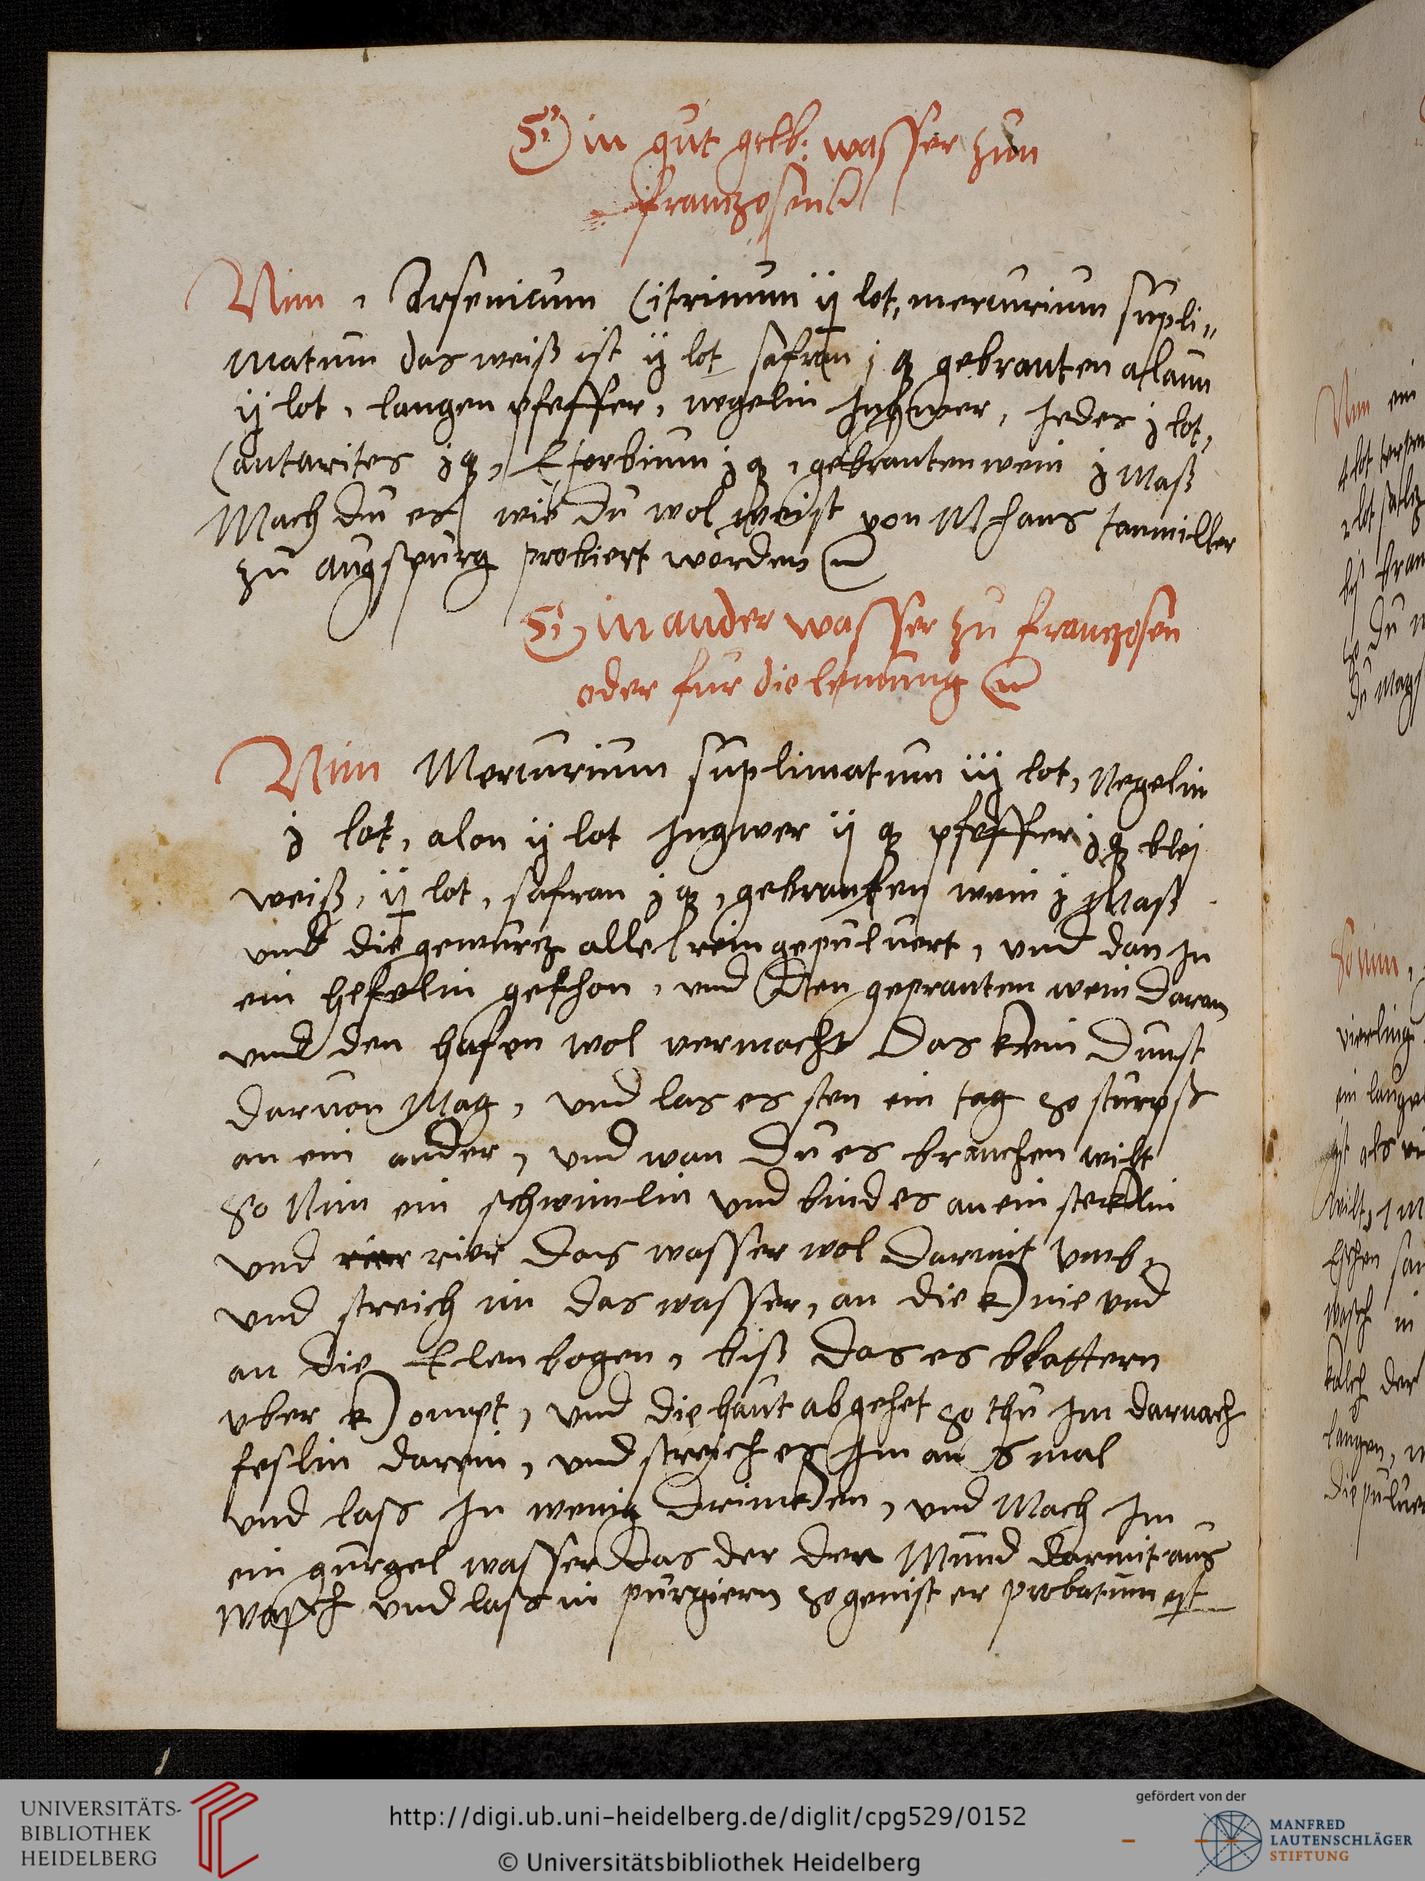 Ein gut gelb: wasser zun
franczosen
Nim , Arsenicum Citrinum ij lot, mercurium supli„
matum das weiß ist ij lot safran j q gebranten alaun
ij lot , langen pfeffer, negelin Ingwer, Jedes j lot,
Cantarites j q, Eforbium j q , gebranten wein j maß
Mach du es wie du wol weist von M hans tanmiller
zu augspurg probiert worden
Ein ander wasser zu franczosen
oder fur die lemung
Nim Mercurium suplimatum iij lot, Negelin
j lot, alon ij lot Ingwer ij q pfeffer j q blej
weiß, ij lot, safran j q , gebranten wein j Maß
und die gewurcz alle rein gepulvert, und dan In
ein hefelin gethon, und den gepranten wein daran
und den hafen wol vermacht das kein dunst
darvon Mag, und las es sten ein tag so
an ein ander, und wan du es brauchen wilt
So Nim ein schwimlin und bind es an ein stecklin
und rier das wasser wol darmit umb,
und streich im das wasser, an die knie und
an die Elenbogen, biß das es blattern
uber kompt, und die haut abgehet so thu Im darnach
feslin darein, und streich es Im an 8 mal
und lass In wenig drincken, und Mach Im
ein gurgel wasser das der den Mund darmit aus
wasch und lass in purgiern so genist er probatum est
Nim ein
4 lot
2 lot
du mag
So nim,
vierling
ein
wilt,
wasch in
der
die pulver
UNIVERSITÄTS-
BIBLIOTHEK
HEIDELBERG
http://digi.ub.uni-heidelberg.de/diglit/cpg529/0152
© Universitätsbibliothek Heidelberg
gefördert von der
MANFRED
LAUTENSCHLÄGER
STIFTUNG